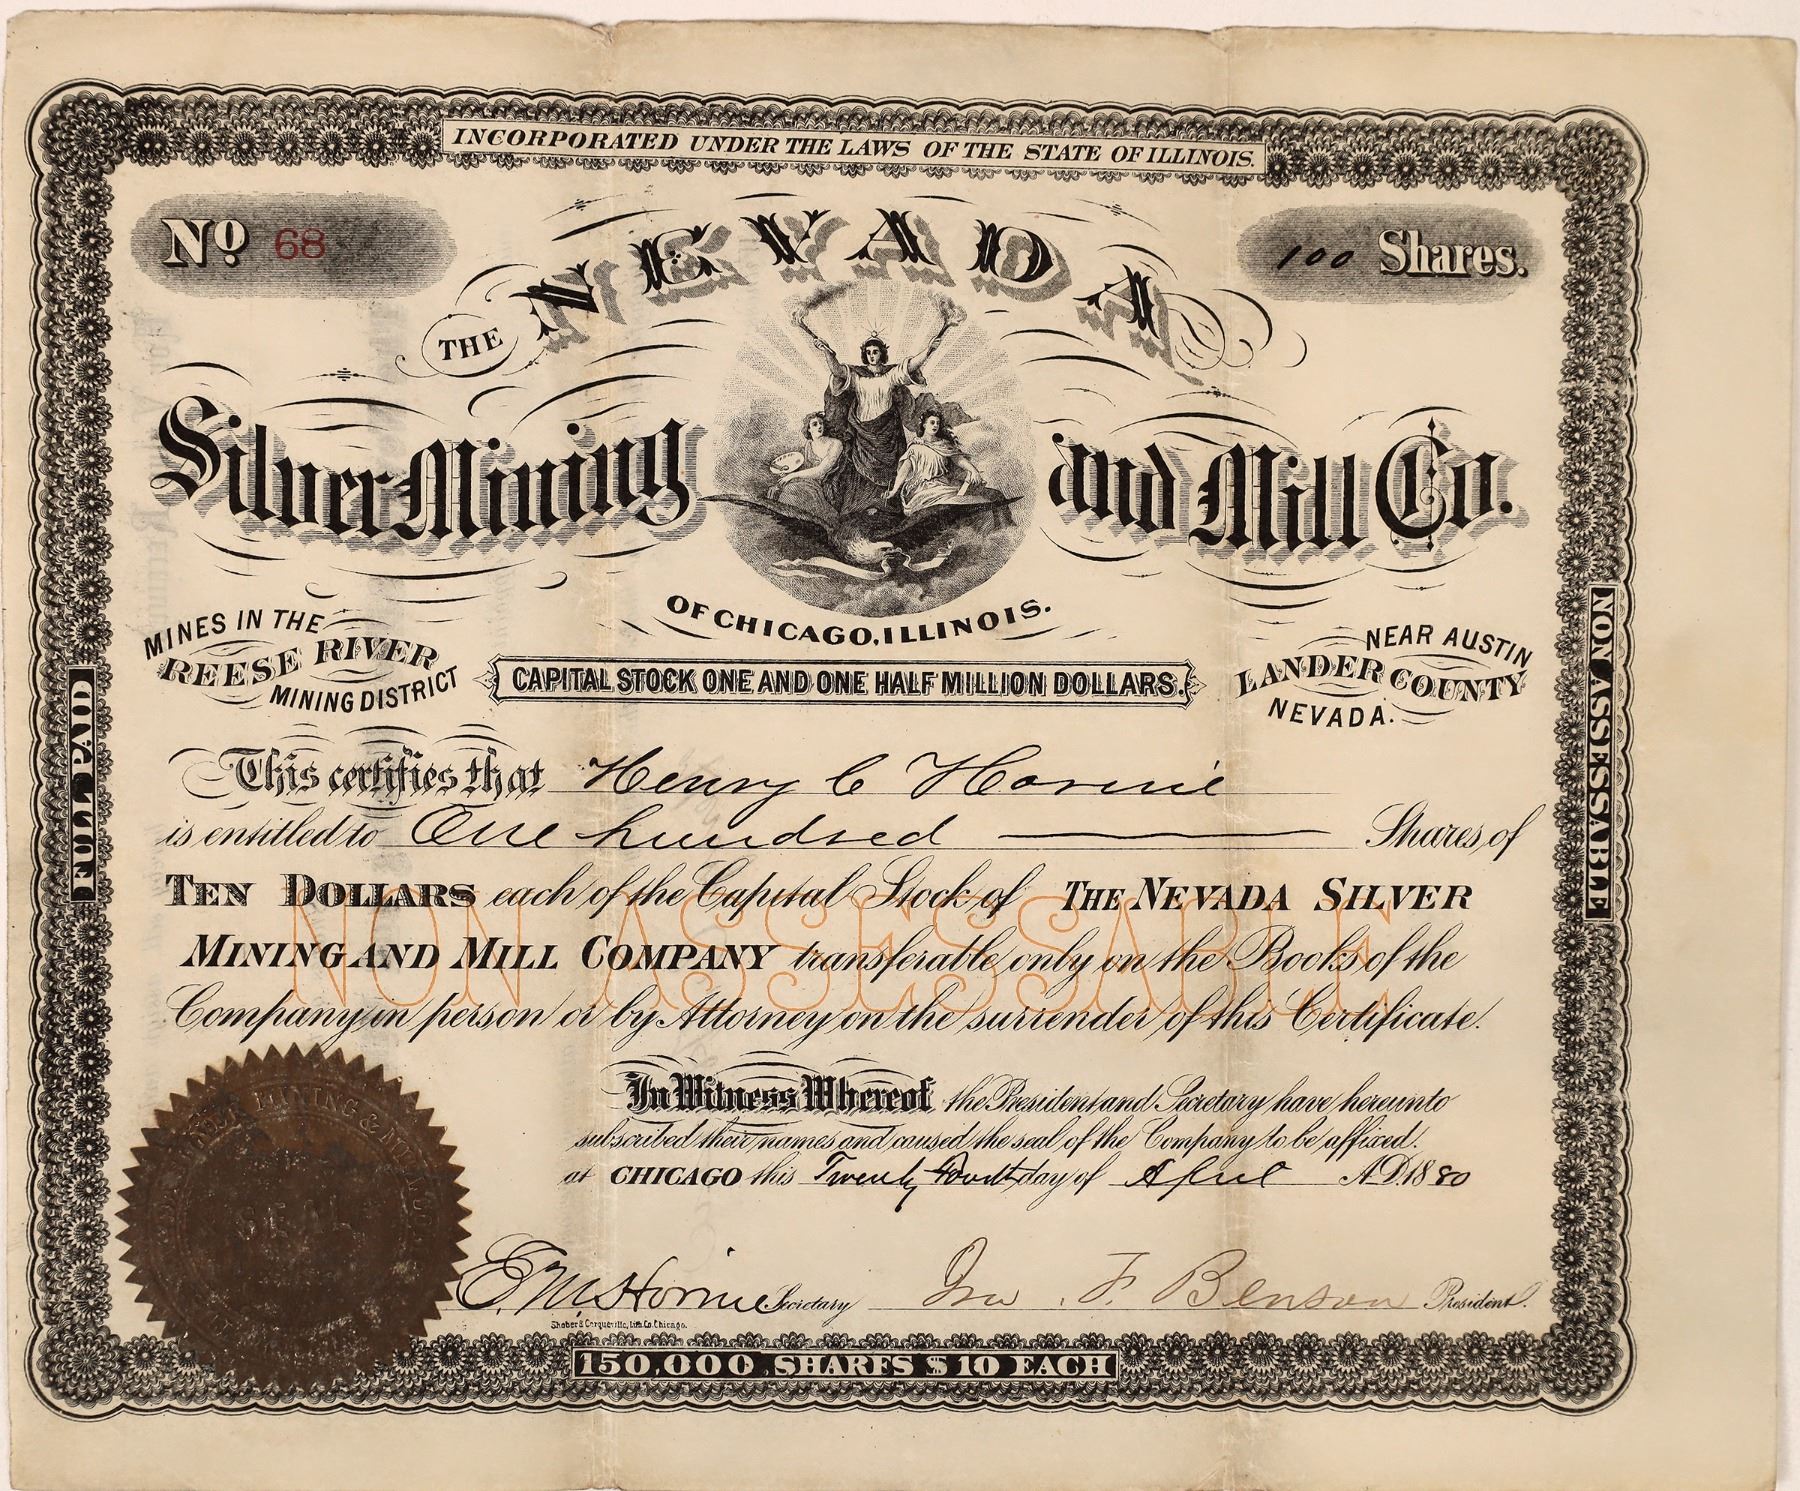 INCORPORATED UNDER THE LAWS OF THE STATE OF ILLINOIS.
No 68
100 Shares.
THE NEVADA
Silver Mining and Mill Co.
OF CHICAGO, ILLINOIS.
MINES IN THE
REESE RIVER
MINING DISTRICT
CAPITAL STOCK ONE AND ONE HALF MILLION DOLLARS.
NEAR AUSTIN
LANDER COUNTY
NEVADA.
FULL PAID
NON ASSESSABLE
This certifies that Henry C Horine
is entitled to One hundred Shares of
TEN DOLLARS each of the Capital Stock of THE NEVADA SILVER
MINING AND MILL COMPANY transferable only on the Books of the
NON ASSESSABLE
Company in person or by Attorney on the surrender of this Certificate.
In Witness Whereof the President and Secretary have hereunto
subscribed their names and caused the seal of the Company to be affixed.
at CHICAGO this Twenty fourth day of April A.D. 1880
MINING & MILL CO
SEAL
E. M. Horine Secretary Jno. F. Benson President.
Shober & Carqueville, Lith. Co. Chicago.
150,000 SHARES $10 EACH